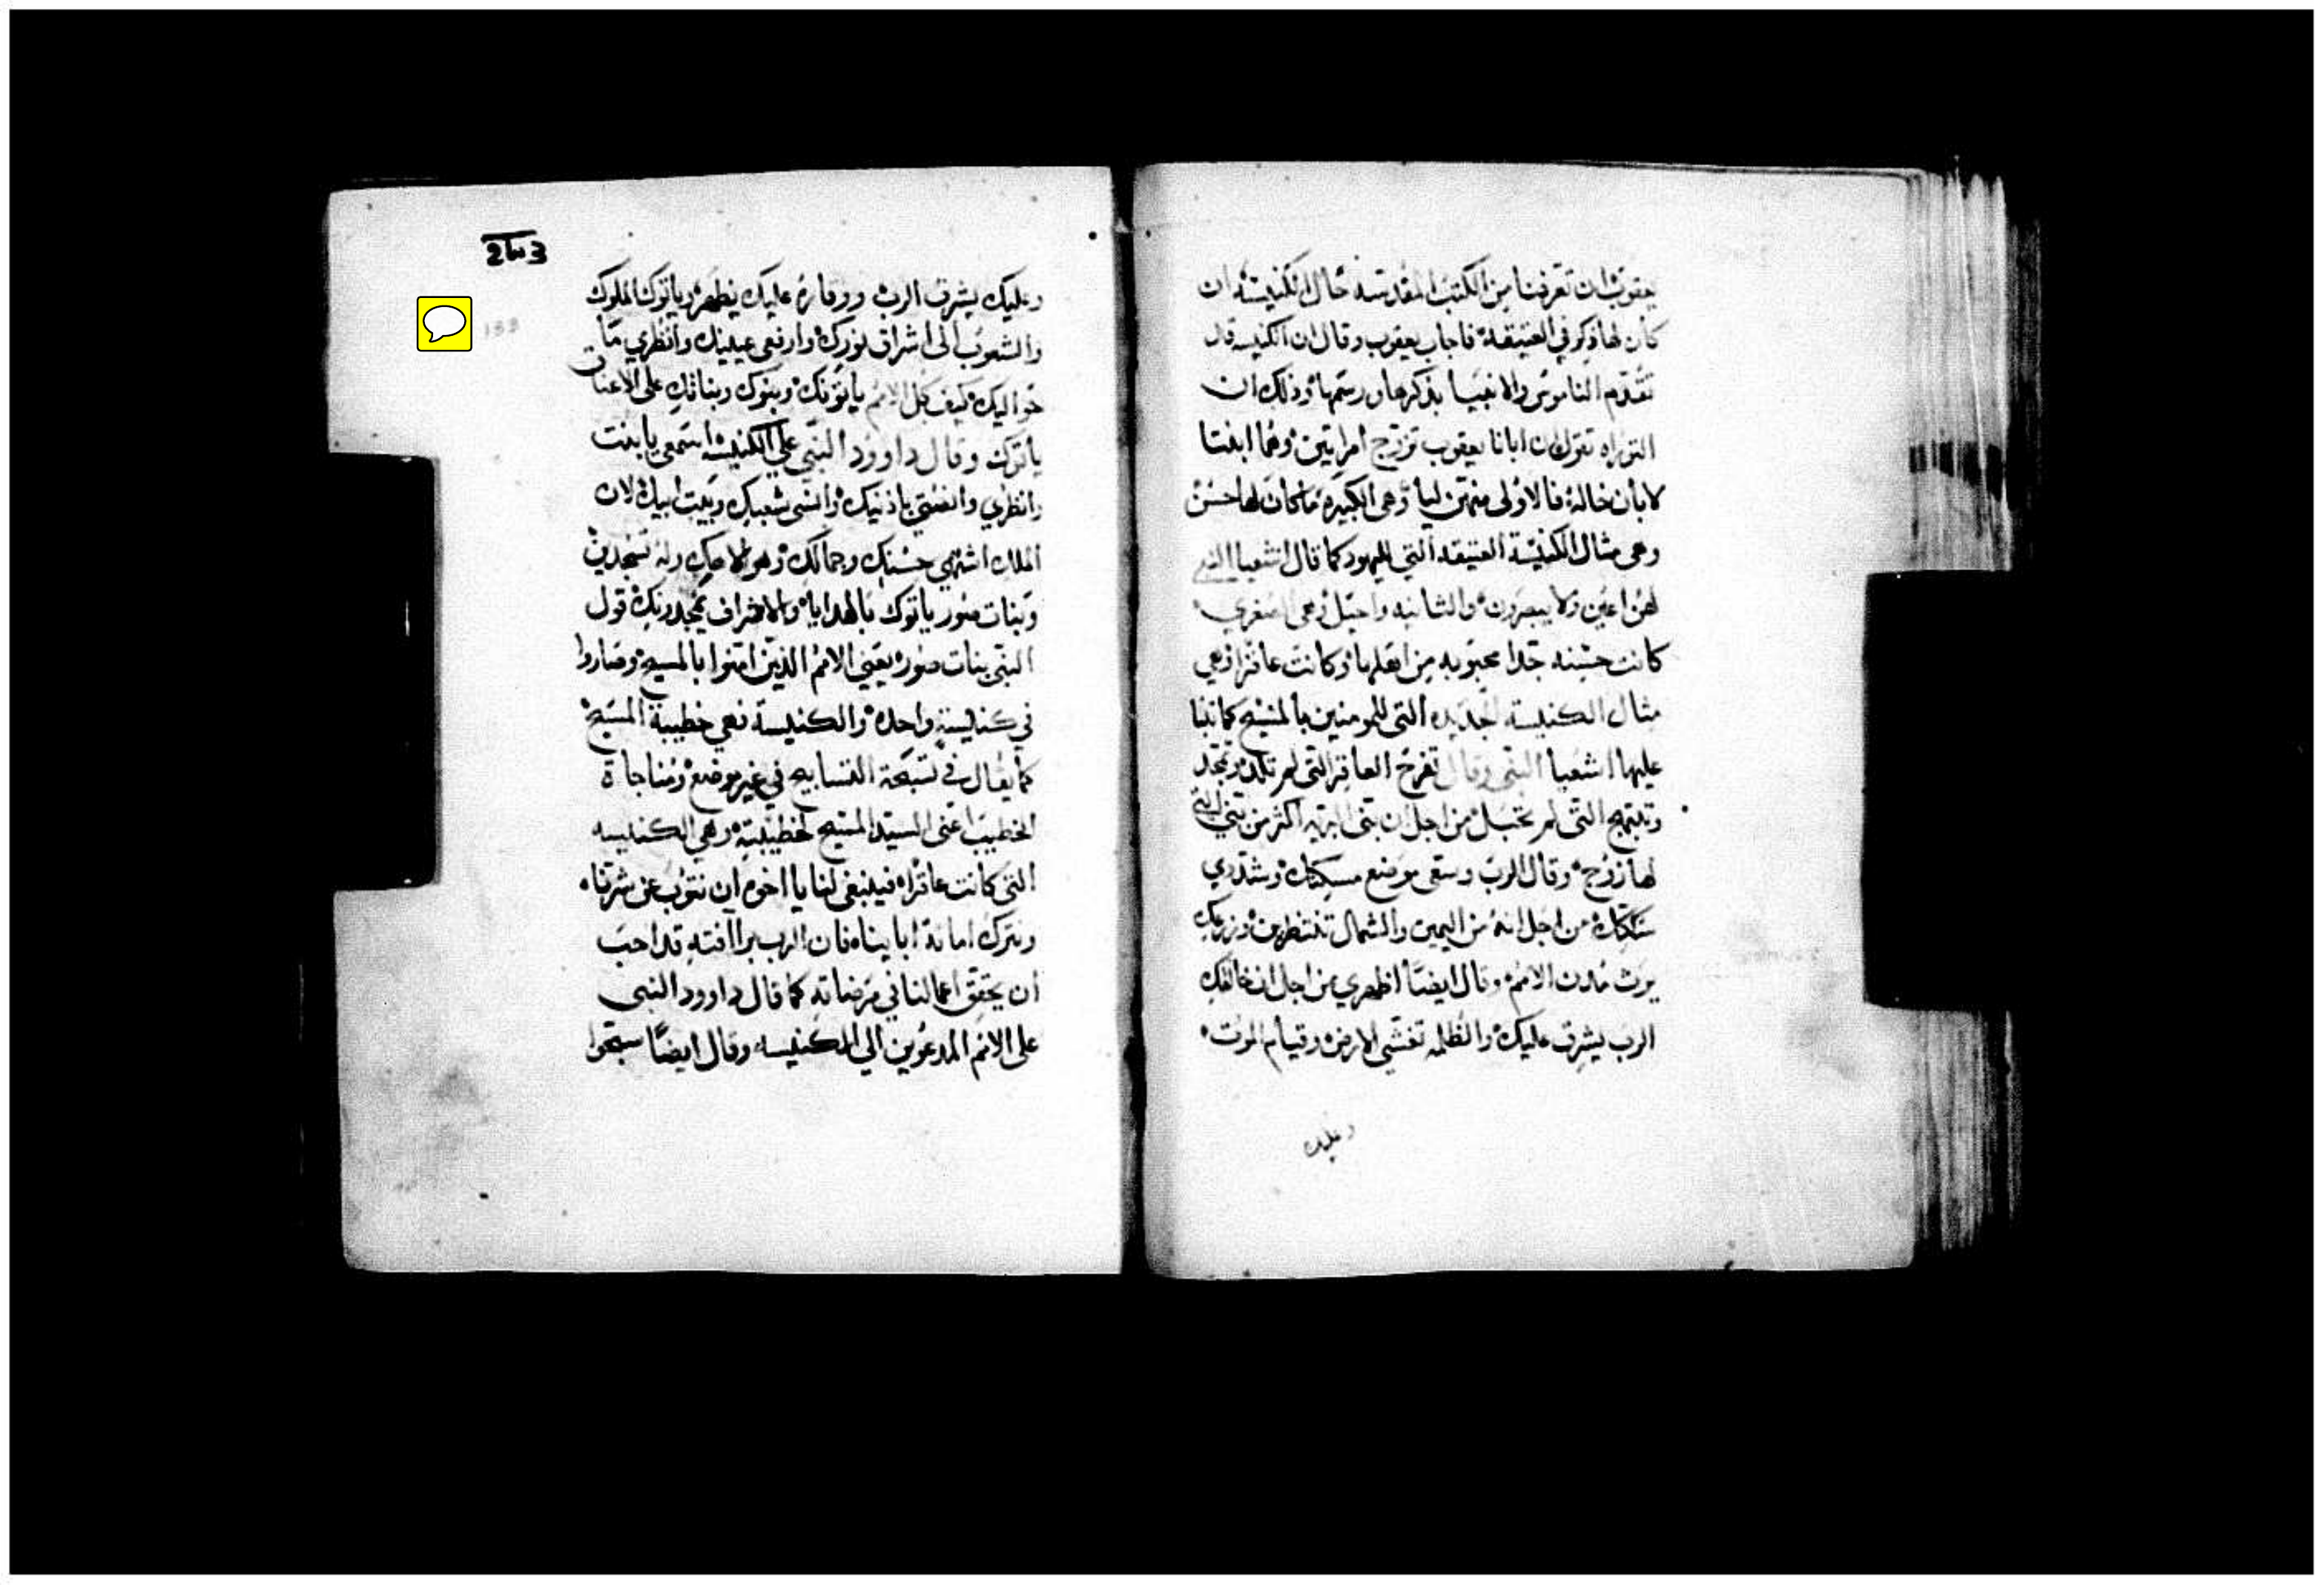 يعقوب ان تعرفنا من الكتب المقدسه حال الكنيسه ان
كان لها ذكر في العتيقه فاجاب يعقوب وقال ان الكنيسه قد
تقدم الناموس والانبيا بذكرها ورسمها وذلك ان
التوراه تقول ان ابانا يعقوب تزوج امراتين وهما ابنتا
لابان خاله فالاولى منهن ليا وهي الكبيره ما كان لها حسن
وهى مثال الكنيسة العتيقه التي لليهود كما قال اشعيا النبي
لهن اعين ولا يبصرون والثانيه راحيل وهى الصغري
كانت حسنه جدا محبوبه من اهلها وكانت عاقرا وهي
مثال الكنيسه الجديده التى للمومنين بالمسيح كما تنبا
عليها اشعيا النبي وقال تفرح العاقر التى لم تلد وتجد
وتبتهج التى لم تحبل من اجل ان بنى البريه اكثر من بني التي
لها زوج وقال الرب وسعى موضع مسكنك وشددي
سككك من اجل انه من اليمين والشمال تنتظرين وزرعك
يرث مدن الامم وقال ايضا اظهري من اجل ان خالقك
الرب يشرق عليك والظلمه تغشي الارض وقيام الموت
وعليك
2ⲙ3
133
وعليك يشرق الرب ووقاره عليك يظهر وياتوك الملوك
والشعوب الى اشراق نورك وارفعي عينيك وانظري ما
حواليك كيف كل الامم ياتونك وبنوك وبناتك على الاعناق
ياتوك وقال داوود النبي على الكنيسه اسمعى يا بنت
وانظري وانصتي باذنيك وانسى شعبك وبيت ابيك لان
الملك اشتهى حسنك وجمالك وهو الاهك وله تسجدين
وبنات صور ياتوك بالهدايا والاشراف يمجدونك قول
النبى بنات صور يعني الامم الذين امنوا بالمسيح وصاروا
في كنيسة واحده والكنيسة فهي خطيبة المسيح
كما يقال في تسبحة التسابيح في غير موضع ومناجاة
الخطيب اعنى السيد المسيح لخطيبته وهي الكنيسه
التى كانت عاقراه فينبغى لنا يا اخوه ان نتوب عن شرنا
ونترك امانة ابايناه فان الرب برافته قد احب
ان يحقق اعمالنا في مرضاته كما قال داوود النبى
على الامم المدعوين الي الكنيسه وقال ايضا سبحوا